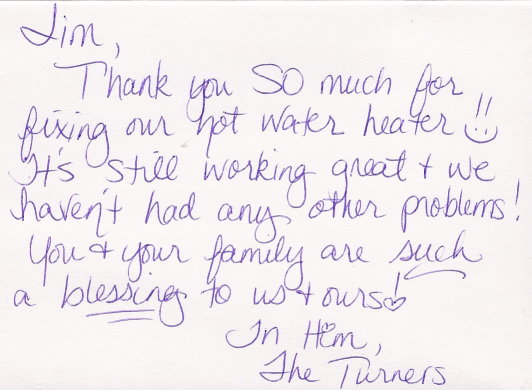 Jim,
Thank you SO much for
fixing our hot water heater!!
It's still working great + we
haven't had any other problems!
You + your family are such
a blessing to us + ours!
In Him,
The Turners